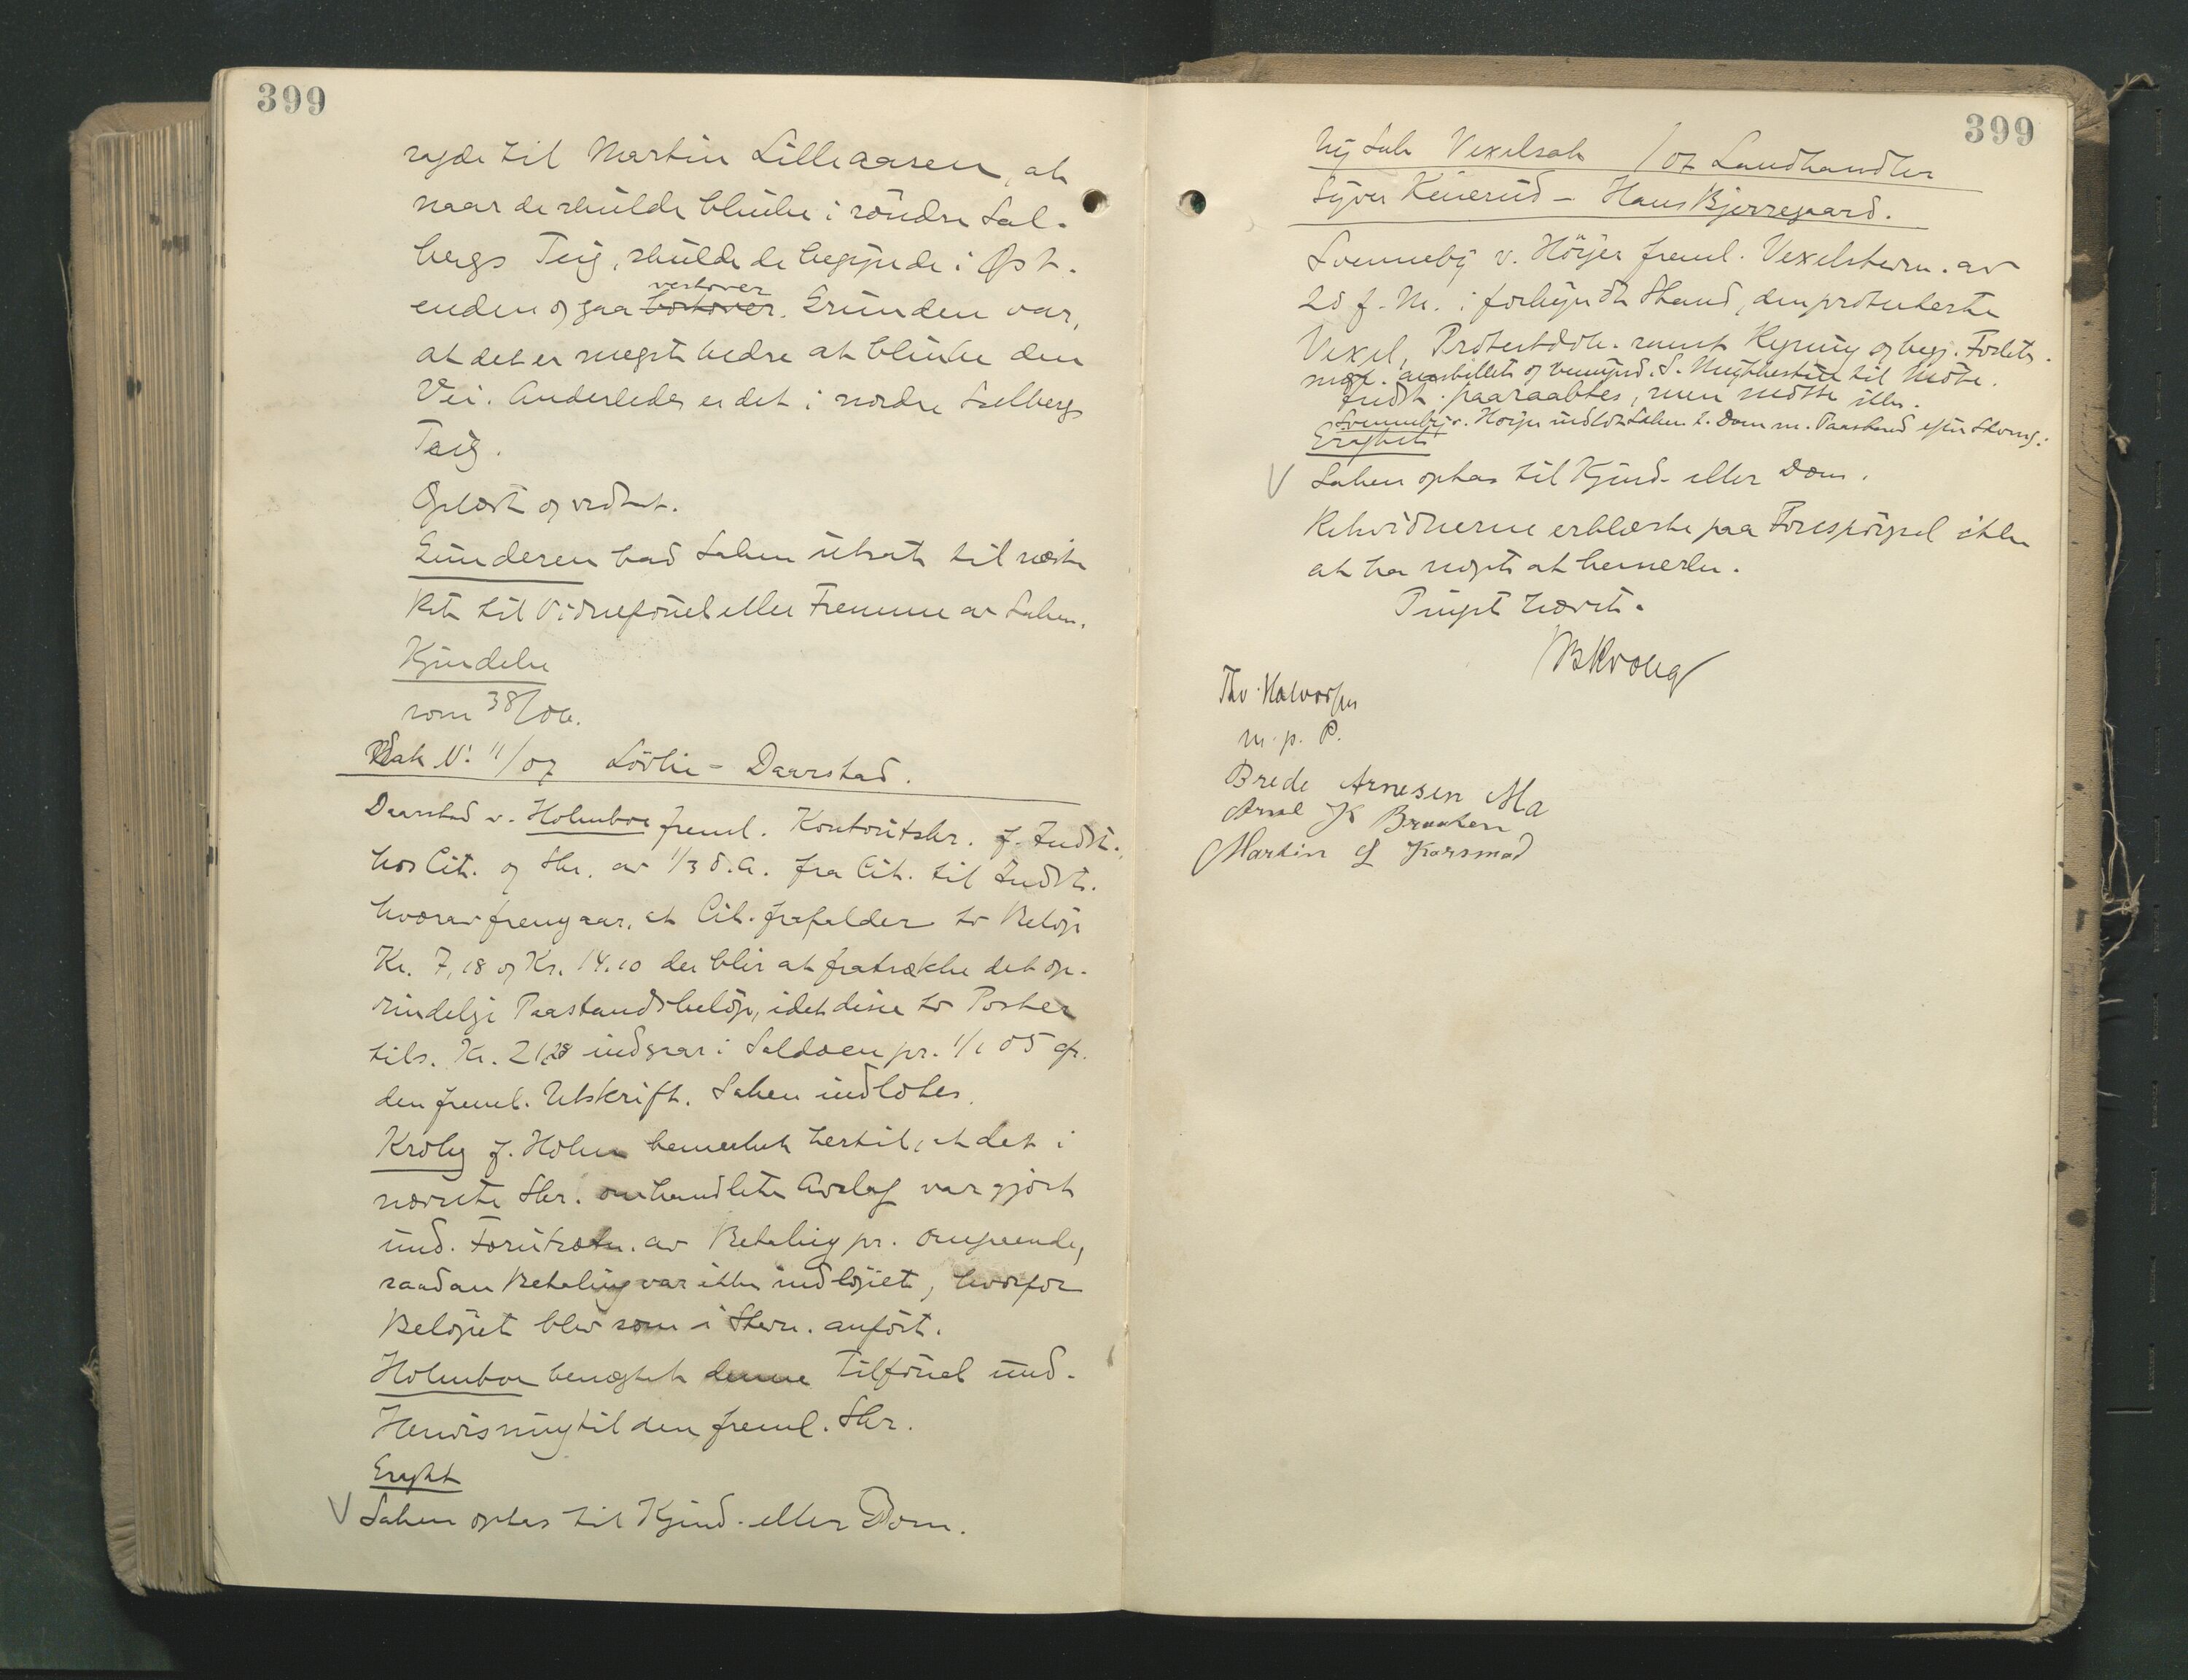 399
sagde til Martin Lilleaasen, at
naar de skulde blinke i söndre Sol-
bergs Teig, skulde de begynde i Øst-
vestover
enden og gaa bortover. Grunden var,
at det er meget bedre at blinke den
Vei. Anderledes er det i nordre Solbergs
Teig.
Oplæst og vedtat.
Gunderen bad Saken utsat til næste
Ret til Vidneförsel eller Fremme av Saken.
Kjendelse
som 38/06.
Sak N: 11/07 Lövlie - Daarstad.
Daarstad v. Holmboe freml. Kontoutskr. f. Indst.
hos Cit. og Skr. av 1/3 d.A. fra Cit. til Indst.
hvorav fremgaar, at Cit. frafalder to Beløp
Kr. 7,18 og Kr. 14.10 der blir at fratrække det op-
rindelige Paastandsbelöp, idet disse to Poster
tils. Kr. 21,28 indgaar i Saldoen pr. 1/1 05 efr.
den freml. Utskrift. Saken indlotes.
Krohg f. Holm bemerket hertil, at det i
nævnte Skr. omhandlete Avslag var gjort
und. Forutsætn. av Betaling pr. omgaaende,
saadan Betaling var ikke indløpet, hvorfor
Beløpet blev som i Stevn. anført.
Holmboe benegtet denne Tilförsel und.
Henvisning til den freml. Skr.
Eragtet
V Saken optas til Kjend. eller Dom.
399
Ny Sak Vexelsak /07 Landhandler
Syver Keiserud - Hans Bjerregaard.
Svenneby v. Höyer freml. Vexelstevn. av
28 f. M. i forkyndt Stand, den protesterte
Vexel, Protestdok. samt Regning og begj. Forlets.
Indst. paaraabtes, men mötte ikke.
Svenneby v. Höyer indlot Saken t. Dom m. Paastand efter Stevng.
Eragtet
V Saken optas til Kjend. eller Dom.
Retsvidnerne erklærte paa Forespörgsel ikke
at ha noget at bemerke.
Tinget hævet.
B Krohg
Thv. Halvorsen
m. p. P.
Brede Arnesen Ma
Arne K Braaten
Martin L Korsmo